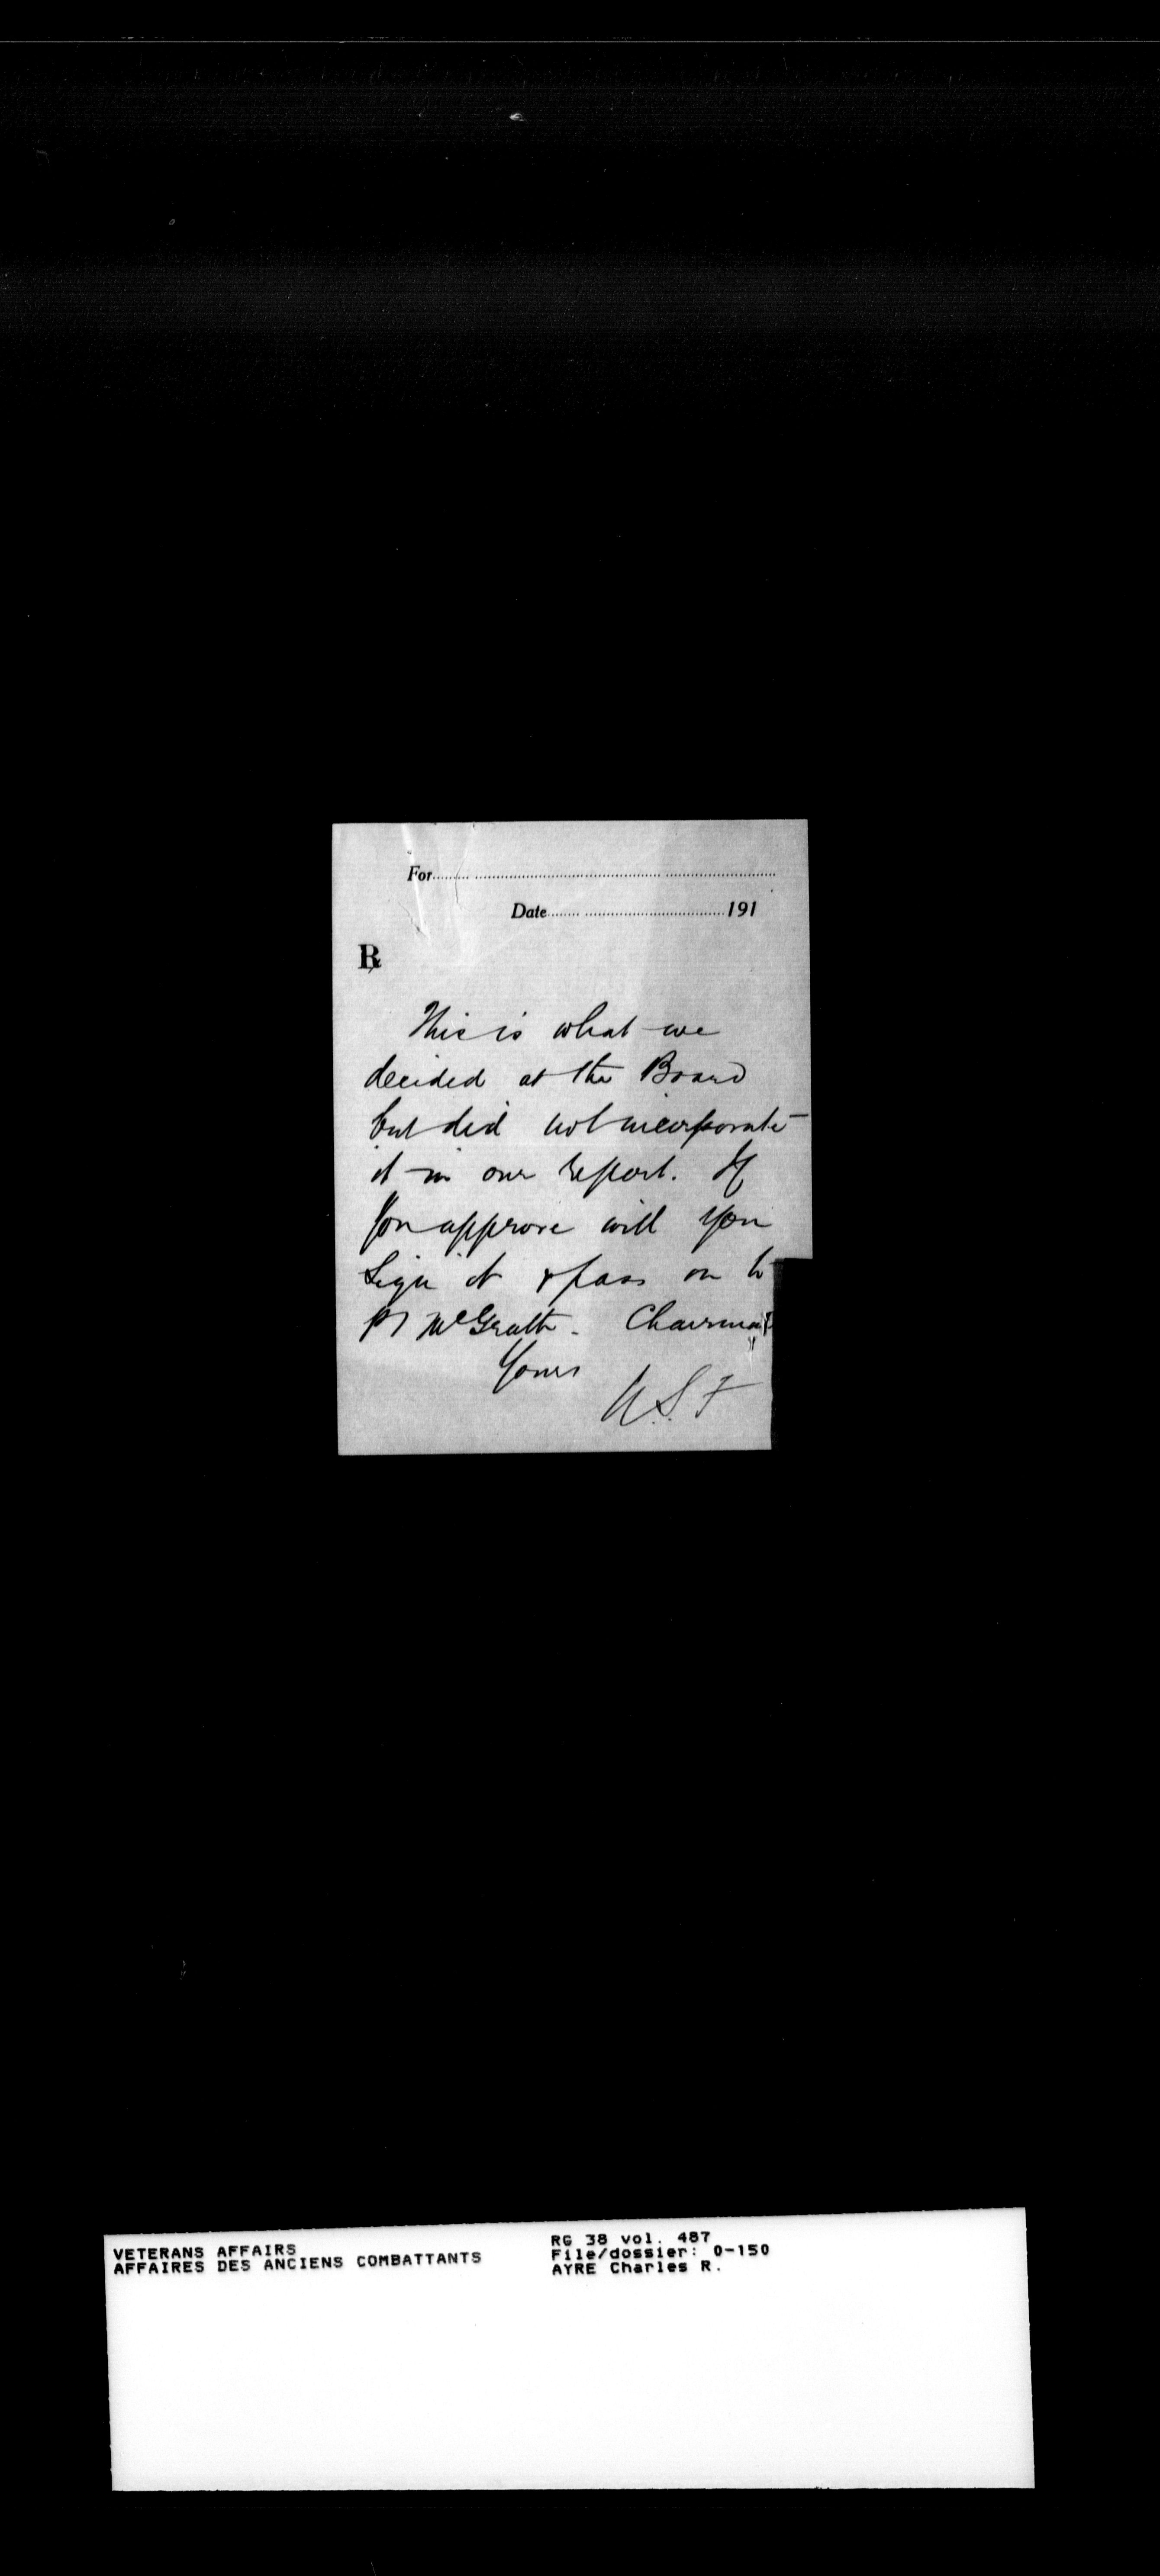 For
Date 191
℞
This is what we
decided at the Board
but did not incorporate
it in our report. If
you approve will you
sign it & pass on to
McGrath. Chairman
Yours
S. F
VETERANS AFFAIRS
AFFAIRES DES ANCIENS COMBATTANTS
RG 38 vol. 487
File/dossier: 0-150
AYRE Charles R.